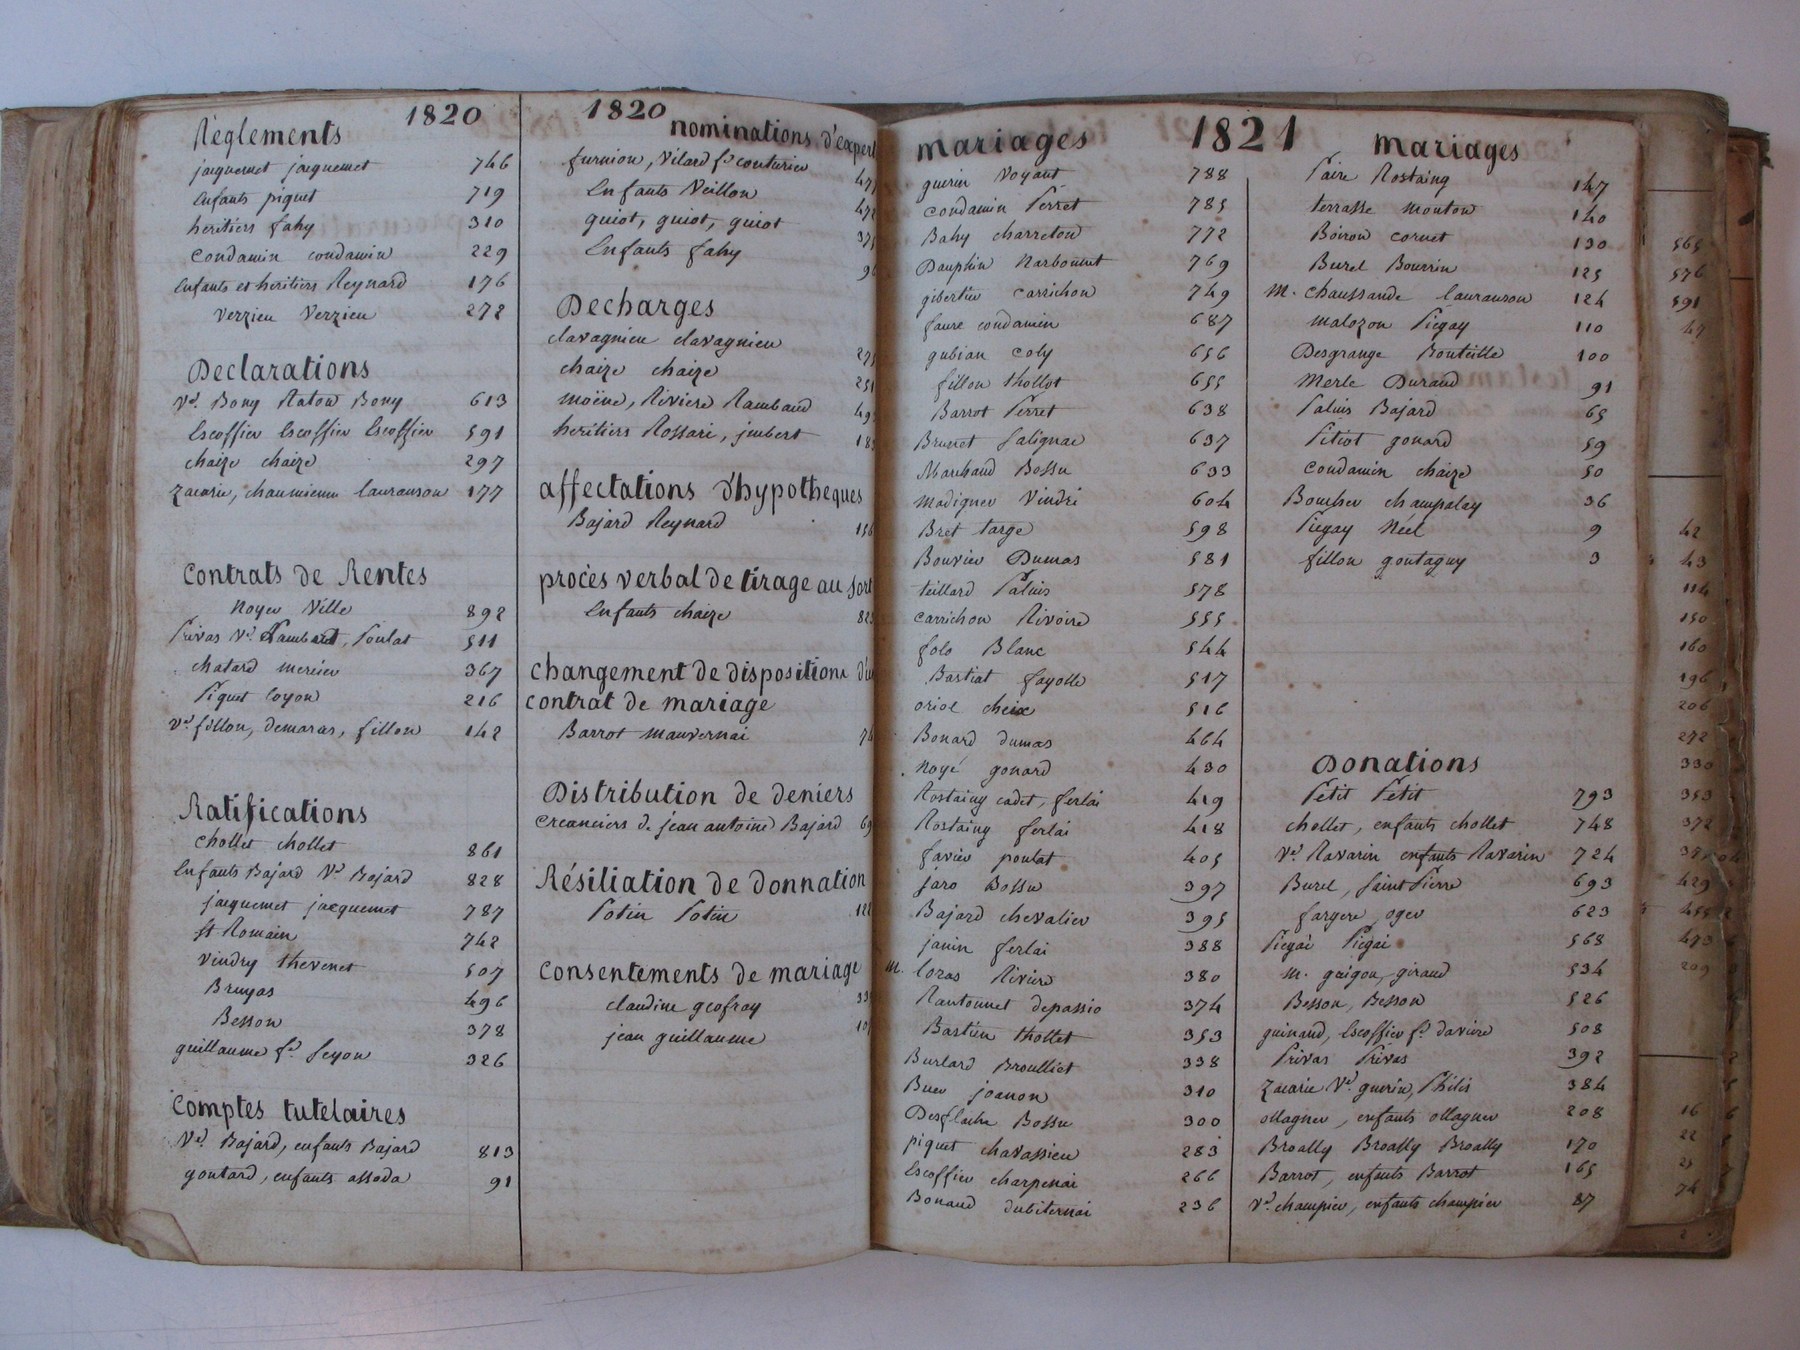 1820
Règlements
jacquemet jacquemet 746
Enfants piquet 719
heritiers fahy 310
Condamin condamin 229
Enfants et heritiers Reynard 176
Verzieu Verzieu 272
Declarations
Ve. Bony Raton Bony 613
Escoffier Escoffier Escoffier 591
chaize chaize 297
Zacarie, chaumienne lauranson 177
Contrats de Rentes
Noyer Ville 892
Privas Ve. Lambert, Poulat 511
chatard mercier 367
Piquet Coyon 216
Ve. fillon, demaras, fillon 142
Ratifications
Chollet chollet 861
Enfants Bajard Ve. Bajard 828
jacquemet jacquemet 787
St Romain 742
Vindry thevenet 507
Bruyas 496
Besson 378
guillaume fe. Seyon 326
Comptes tutelaires
Ve. Bajard, enfants Bajard 813
goutard, enfants assada 91
1820
nominations d'expert
furnion, Vilard fe couturier 47
Enfants Veillon 47
guiot, guiot, guiot 37
Enfants fahy 9
Decharges
clavagnieu clavagnieu 27
chaize chaize 251
moine, Riviere Rambaud 49
heritiers Rossari, jmbert 18
affectations d'hypotheques
Bajard Reynard 156
procès verbal de tirage au sort
Enfants chaize 82
changement de dispositions d'un
contrat de mariage
Barrot mauvernai 7
Distribution de deniers
Creanciers de jean antoine Bajard 69
Résiliation de donnation
Potin Potin 122
Consentements de mariage
claudine geofray 33
jean guillaume 10
1821
mariages
guerin Voyant 788
Condamin Perret 785
Bahy charreton 772
Dauphin Narbonnet 769
gibertier carrichon 749
faure condamin 687
gubian coly 656
fillon thollot 655
Barrot Perret 638
Brunet Salignac 637
Marchand Bossu 633
Madignier Vindri 604
Bret targe 598
Bouvier Dumas 581
teillard Paluis 578
Carrichon Rivoire 555
folo Blanc 544
Bastiat fayolle 517
oriol cheix 516
Bonard dumas 464
Noyé gonard 430
Rostaing cadet, ferlai 419
Rostaing ferlai 418
favier poulat 405
faro Bossu 397
Bajard chevalier 395
janin ferlai 388
m. loras Rivière 380
Rantonnet depassio 374
Bastien thollet 353
Burlard Broulliet 338
Buer joanon 310
Desflache Bossu 300
piquet chavassieu 283
Escoffier charpenai 266
Bonand dubiternai 236
mariages
Paire Rostaing 147
terrasse mouton 140
Boiron cornet 130
Burel Bourrin 125
m. chaussande lauranson 124
malozon Piegay 110
Desgrange Bouteille 100
Merle Durand 91
Paluis Bajard 65
Pitiot gonard 59
Condamin chaize 50
Boucher champalay 36
Piegay Neel 9
fillon goutagny 3
Donations
Petit Petit 793
chollet, enfants chollet 748
Ve. Ravarin enfants Ravarin 724
Burel, Saint Pierre 693
fargere, oger 623
Piegai Piegai 568
m. guigou, giraud 534
Besson, Besson 526
guinand, Escoffier fe. daviere 508
Privas Privas 392
Zacarie Ve. guerin, Philis 384
ollagner, enfants ollagner 208
Broally Broally Broally 170
Barrot, enfants Barrot 165
Ve. champier, enfants champier 87
565
576
591
47
42
43
114
150
160
196
206
272
330
353
372
429
455
473
209
16
22
74